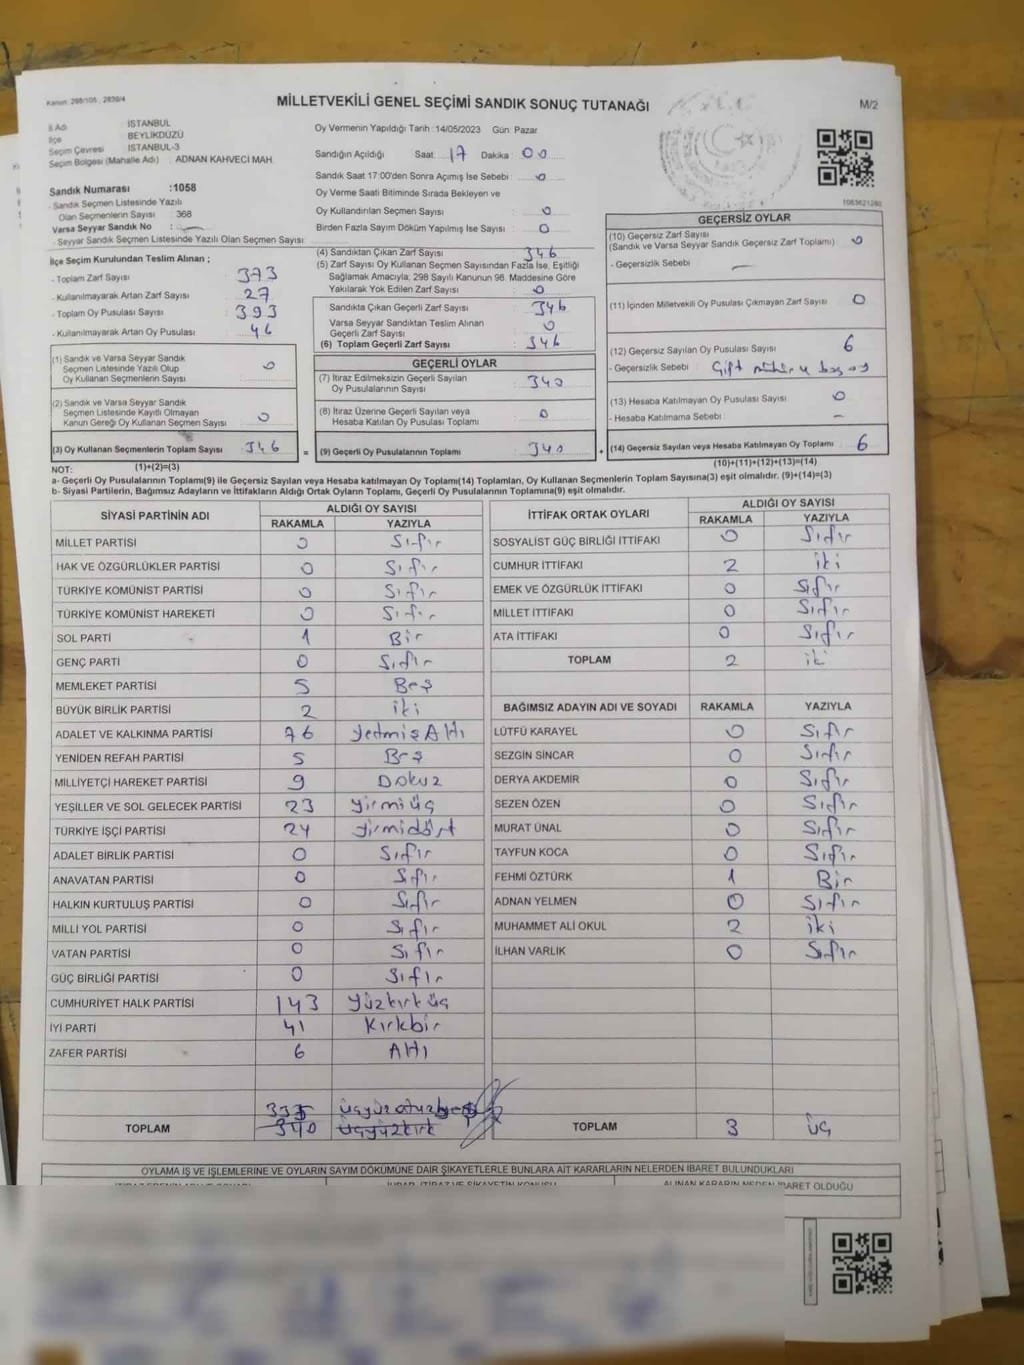 Kanun: 298/105 , 2839/4
MİLLETVEKİLİ GENEL SEÇİMİ SANDIK SONUÇ TUTANAĞI
M/2
İl Adı : İSTANBUL
İlçe : BEYLİKDÜZÜ
Seçim Çevresi : İSTANBUL-3
Seçim Bölgesi (Mahalle Adı) : ADNAN KAHVECİ MAH.
Sandık Numarası :1058
- Sandık Seçmen Listesinde Yazılı
Olan Seçmenlerin Sayısı : 368
Varsa Seyyar Sandık No :
- Seyyar Sandık Seçmen Listesinde Yazılı Olan Seçmen Sayısı
Oy Vermenin Yapıldığı Tarih :14/05/2023 Gün: Pazar
Sandığın Açıldığı Saat: 17 Dakika: 00
Sandık Saat 17:00'den Sonra Açımış İse Sebebi : 0
Oy Verme Saati Bitiminde Sırada Bekleyen ve
Oy Kullandırılan Seçmen Sayısı : 0
Birden Fazla Sayım Döküm Yapılmış İse Sayısı : 0
1083621280
İlçe Seçim Kurulundan Teslim Alınan ;
- Toplam Zarf Sayısı : 373
- Kullanılmayarak Artan Zarf Sayısı : 27
- Toplam Oy Pusulası Sayısı : 393
- Kullanılmayarak Artan Oy Pusulası : 46
(1) Sandık ve Varsa Seyyar Sandık
Seçmen Listesinde Yazılı Olup
Oy Kullanan Seçmenlerin Sayısı : 0
(2) Sandık ve Varsa Seyyar Sandık
Seçmen Listesinde Kayıtlı Olmayan
Kanun Gereği Oy Kullanan Seçmen Sayısı : 0
(3) Oy Kullanan Seçmenlerin Toplam Sayısı : 346
(4) Sandıktan Çıkan Zarf Sayısı : 346
(5) Zarf Sayısı Oy Kullanan Seçmen Sayısından Fazla İse, Eşitliği
Sağlamak Amacıyla; 298 Sayılı Kanunun 98. Maddesine Göre
Yakılarak Yok Edilen Zarf Sayısı : 0
Sandıkta Çıkan Geçerli Zarf Sayısı : 346
Varsa Seyyar Sandıktan Teslim Alınan
Geçerli Zarf Sayısı : 0
(6) Toplam Geçerli Zarf Sayısı : 346
GEÇERLİ OYLAR
(7) İtiraz Edilmeksizin Geçerli Sayılan
Oy Pusulalarının Sayısı : 340
(8) İtiraz Üzerine Geçerli Sayılan veya
Hesaba Katılan Oy Pusulası Toplamı : 0
= (9) Geçerli Oy Pusulalarının Toplamı : 340 +
GEÇERSİZ OYLAR
(10) Geçersiz Zarf Sayısı : 0
(Sandık ve Varsa Seyyar Sandık Geçersiz Zarf Toplamı)
- Geçersizlik Sebebi :
(11) İçinden Milletvekili Oy Pusulası Çıkmayan Zarf Sayısı : 0
(12) Geçersiz Sayılan Oy Pusulası Sayısı : 6
- Geçersizlik Sebebi : Çift mühür
(13) Hesaba Katılmayan Oy Pusulası Sayısı : 0
- Hesaba Katılmama Sebebi :
(14) Geçersiz Sayılan veya Hesaba Katılmayan Oy Toplamı : 6
(10)+(11)+(12)+(13)=(14)
NOT: (1)+(2)=(3)
a- Geçerli Oy Pusulalarının Toplamı(9) ile Geçersiz Sayılan veya Hesaba katılmayan Oy Toplamı(14) Toplamları, Oy Kullanan Seçmenlerin Toplam Sayısına(3) eşit olmalıdır. (9)+(14)=(3)
b- Siyasi Partilerin, Bağımsız Adayların ve İttifakların Aldığı Ortak Oyların Toplamı, Geçerli Oy Pusulalarının Toplamına(9) eşit olmalıdır.
SİYASİ PARTİNİN ADI ALDIĞI OY SAYISI
RAKAMLA YAZIYLA
MİLLET PARTİSİ 0 Sıfır
HAK VE ÖZGÜRLÜKLER PARTİSİ 0 Sıfır
TÜRKİYE KOMÜNİST PARTİSİ 0 Sıfır
TÜRKİYE KOMÜNİST HAREKETİ 0 Sıfır
SOL PARTİ 1 Bir
GENÇ PARTİ 0 Sıfır
MEMLEKET PARTİSİ 5 Beş
BÜYÜK BİRLİK PARTİSİ 2 iki
ADALET VE KALKINMA PARTİSİ 76 Yetmiş Altı
YENİDEN REFAH PARTİSİ 5 Beş
MİLLİYETÇİ HAREKET PARTİSİ 9 Dokuz
YEŞİLLER VE SOL GELECEK PARTİSİ 23 Yirmi üç
TÜRKİYE İŞÇİ PARTİSİ 24 Yirmidört
ADALET BİRLİK PARTİSİ 0 Sıfır
ANAVATAN PARTİSİ 0 Sıfır
HALKIN KURTULUŞ PARTİSİ 0 Sıfır
MİLLİ YOL PARTİSİ 0 Sıfır
VATAN PARTİSİ 0 Sıfır
GÜÇ BİRLİĞİ PARTİSİ 0 Sıfır
CUMHURİYET HALK PARTİSİ 143 Yüzkırk üç
İYİ PARTİ 41 Kırkbir
ZAFER PARTİSİ 6 Altı
335 üçyüzotuzbeş
TOPLAM 340 üçyüzkırk
İTTİFAK ORTAK OYLARI ALDIĞI OY SAYISI
RAKAMLA YAZIYLA
SOSYALİST GÜÇ BİRLİĞİ İTTİFAKI 0 Sıfır
CUMHUR İTTİFAKI 2 iki
EMEK VE ÖZGÜRLÜK İTTİFAKI 0 Sıfır
MİLLET İTTİFAKI 0 Sıfır
ATA İTTİFAKI 0 Sıfır
TOPLAM 2 iki
BAĞIMSIZ ADAYIN ADI VE SOYADI RAKAMLA YAZIYLA
LÜTFÜ KARAYEL 0 Sıfır
SEZGİN SİNCAR 0 Sıfır
DERYA AKDEMİR 0 Sıfır
SEZEN ÖZEN 0 Sıfır
MURAT ÜNAL 0 Sıfır
TAYFUN KOCA 0 Sıfır
FEHMİ ÖZTÜRK 1 Bir
ADNAN YELMEN 0 Sıfır
MUHAMMET ALİ OKUL 2 iki
İLHAN VARLIK 0 Sıfır
TOPLAM 3 üç
OYLAMA İŞ VE İŞLEMLERİNE VE OYLARIN SAYIM DÖKÜMÜNE DAİR ŞİKAYETLERLE BUNLARA AİT KARARLARIN NELERDEN İBARET BULUNDUKLARI
ALINAN KARARIN NEDEN İBARET OLDUĞU